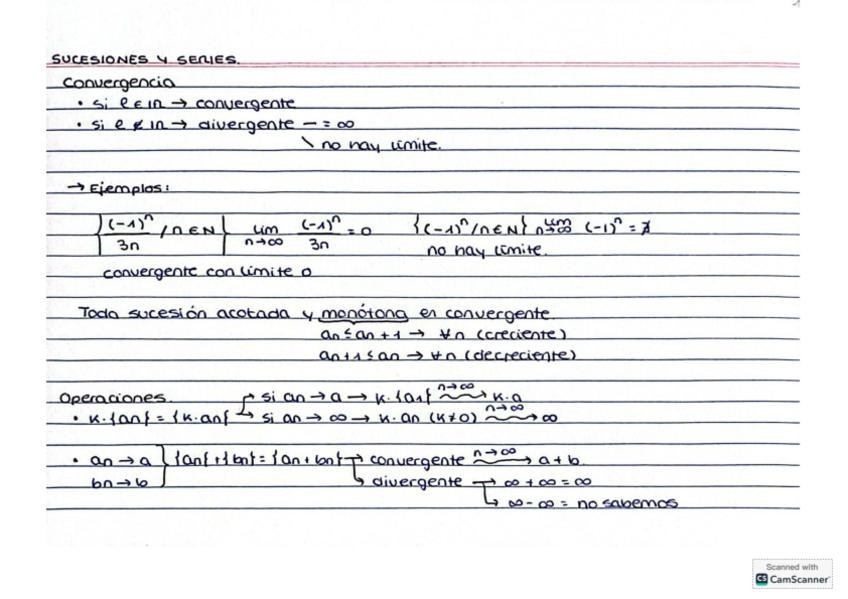 SUCESIONES Y SERIES.
Convergencia
• si l ∈ IR → convergente
• si l ∉ IR → divergente — = ∞
\ no hay límite.
→ Ejemplos:
{(-1)ⁿ/3n / n ∈ N} lim n→∞ (-1)ⁿ/3n = 0 {(-1)ⁿ / n ∈ N} lim n→∞ (-1)ⁿ = ∄
convergente con límite 0 no hay límite.
Toda sucesión acotada y monótona es convergente.
an ≤ an+1 → ∀n (creciente)
an+1 ≤ an → ∀n (decreciente)
Operaciones. si an → a → K·{an} n→∞ → K·a
• K·{an} = {K·an} si an → ∞ → K·an (K≠0) n→∞ → ∞
• an → a {an} + {bn} = {an + bn} → convergente n→∞ → a+b
bn → b → divergente → ∞ + ∞ = ∞
↳ ∞ - ∞ = no sabemos
Scanned with
CS CamScanner